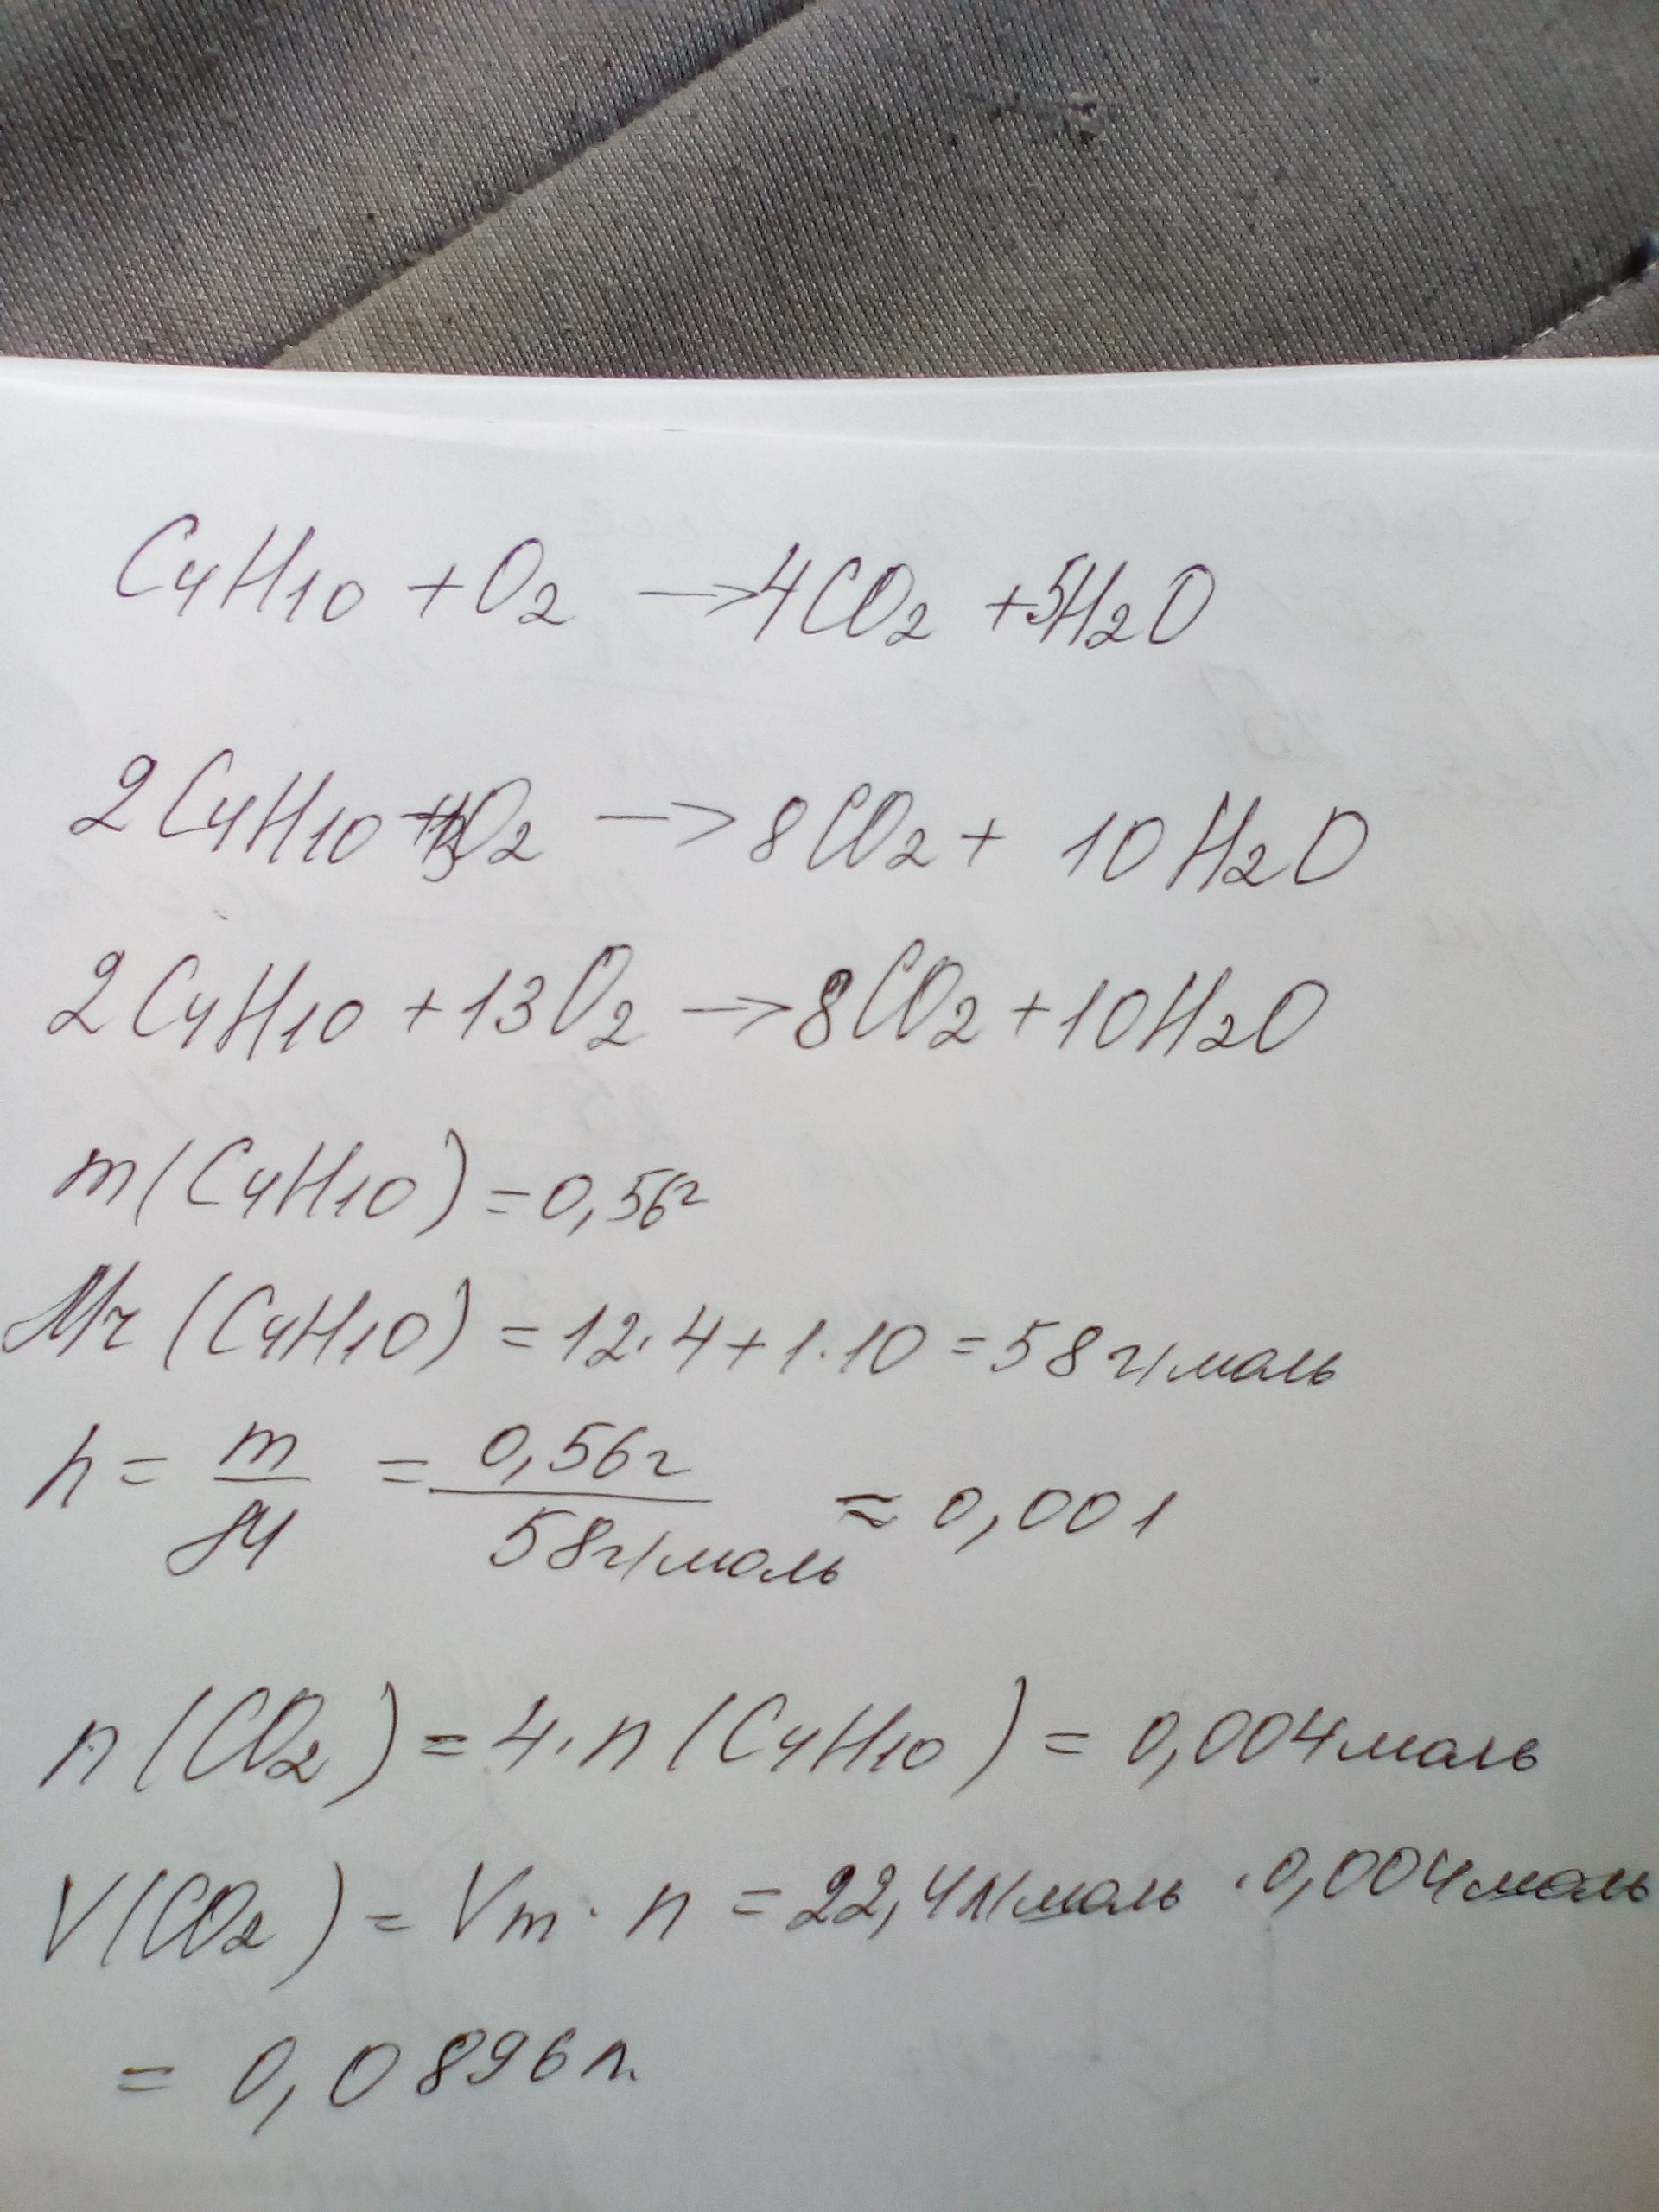 C₄H₁₀ + O₂ → 4CO₂ + 5H₂O
2C₄H₁₀ + 13O₂ → 8CO₂ + 10H₂O
2C₄H₁₀ + 13O₂ → 8CO₂ + 10H₂O
m(C₄H₁₀) = 0,56г
Mr(C₄H₁₀) = 12·4 + 1·10 = 58г/моль
n = m/M = 0,56г/58г/моль ≈ 0,001
n(CO₂) = 4·n(C₄H₁₀) = 0,004моль
V(CO₂) = Vm·n = 22,4л/моль · 0,004моль
= 0,0896л.